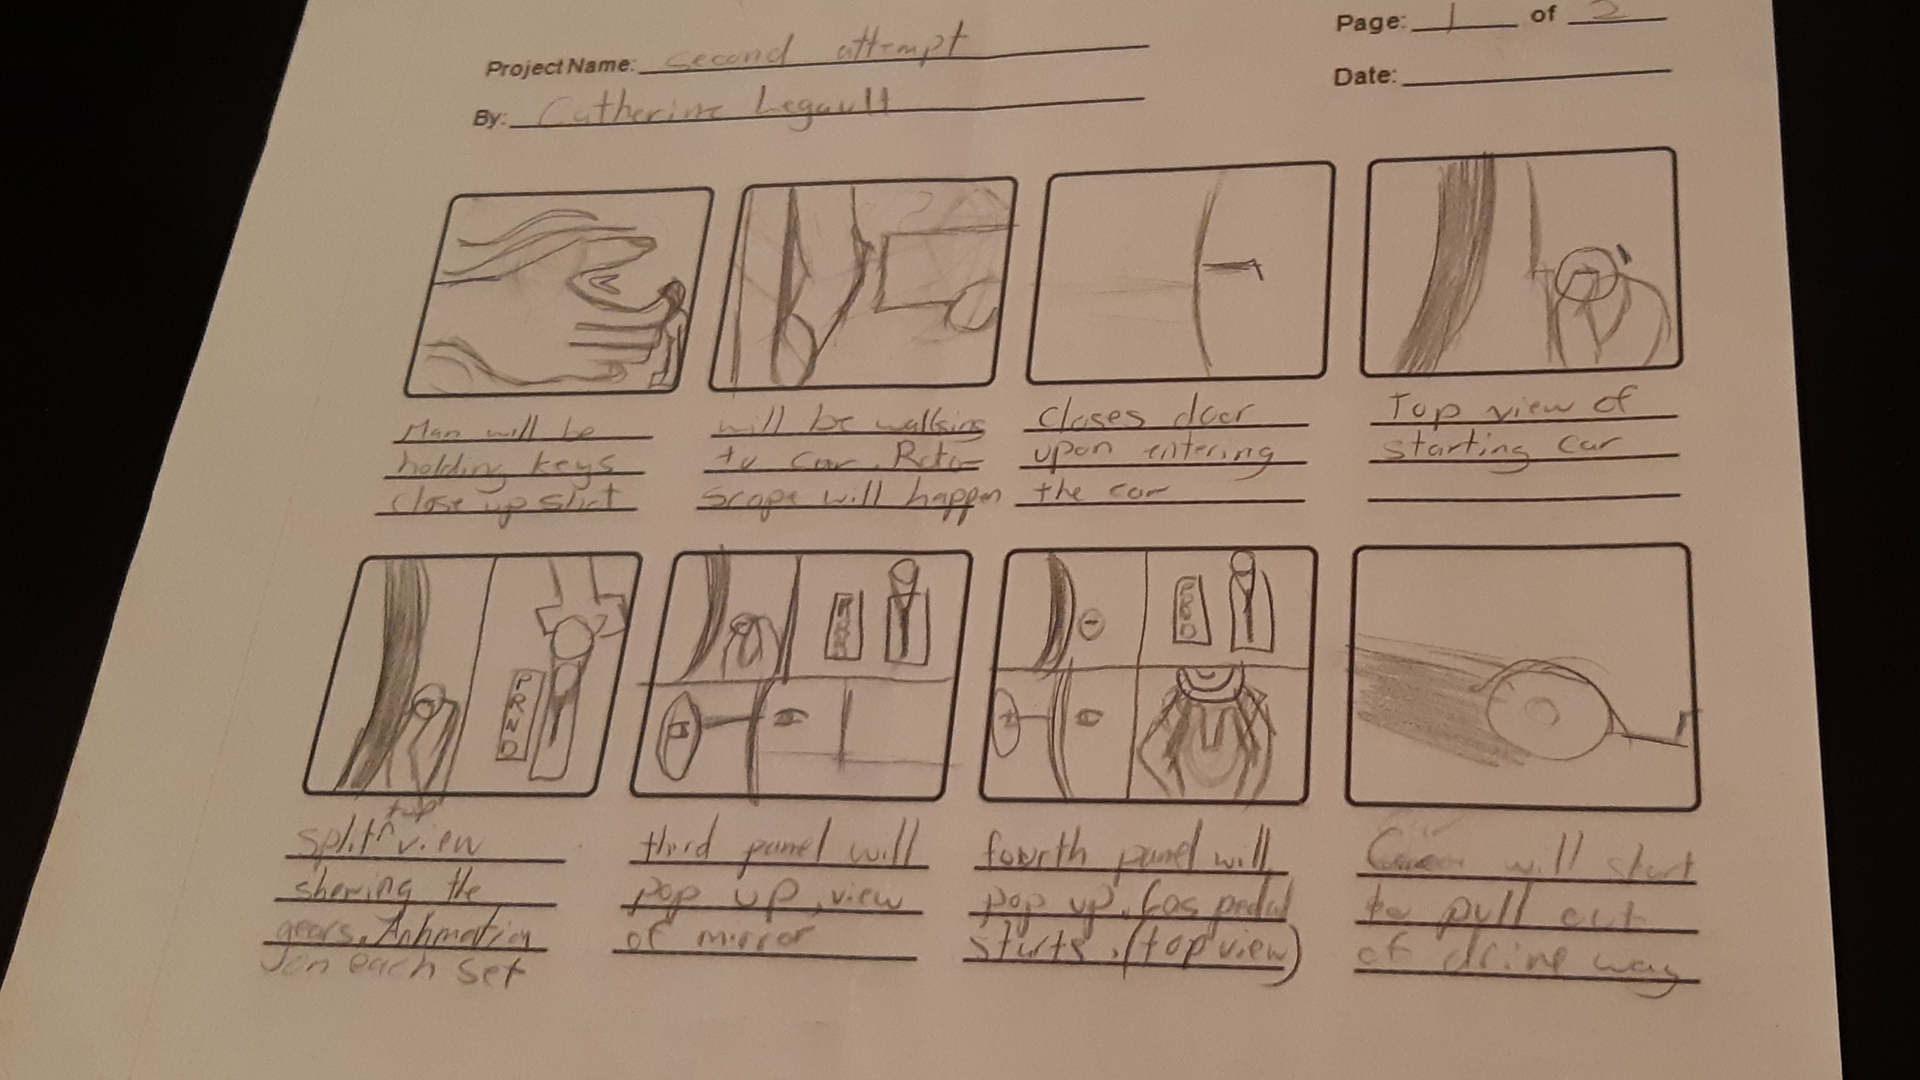 Page: 1 of 2
Project Name: second attempt
Date:
By: Catherine Legault
Man will be
holding keys
close up shot
will be walking
to car. Roto-
scope will happen
closes door
upon entering
the car
Top view of
starting car
PRND
top
split ^ view
showing the
gears. Anhmation
on each set
third panel will
pop up, view
of mirror
fourth panel will
pop up. Gas pedal
starts. (top view)
Car will start
to pull out
of drive way